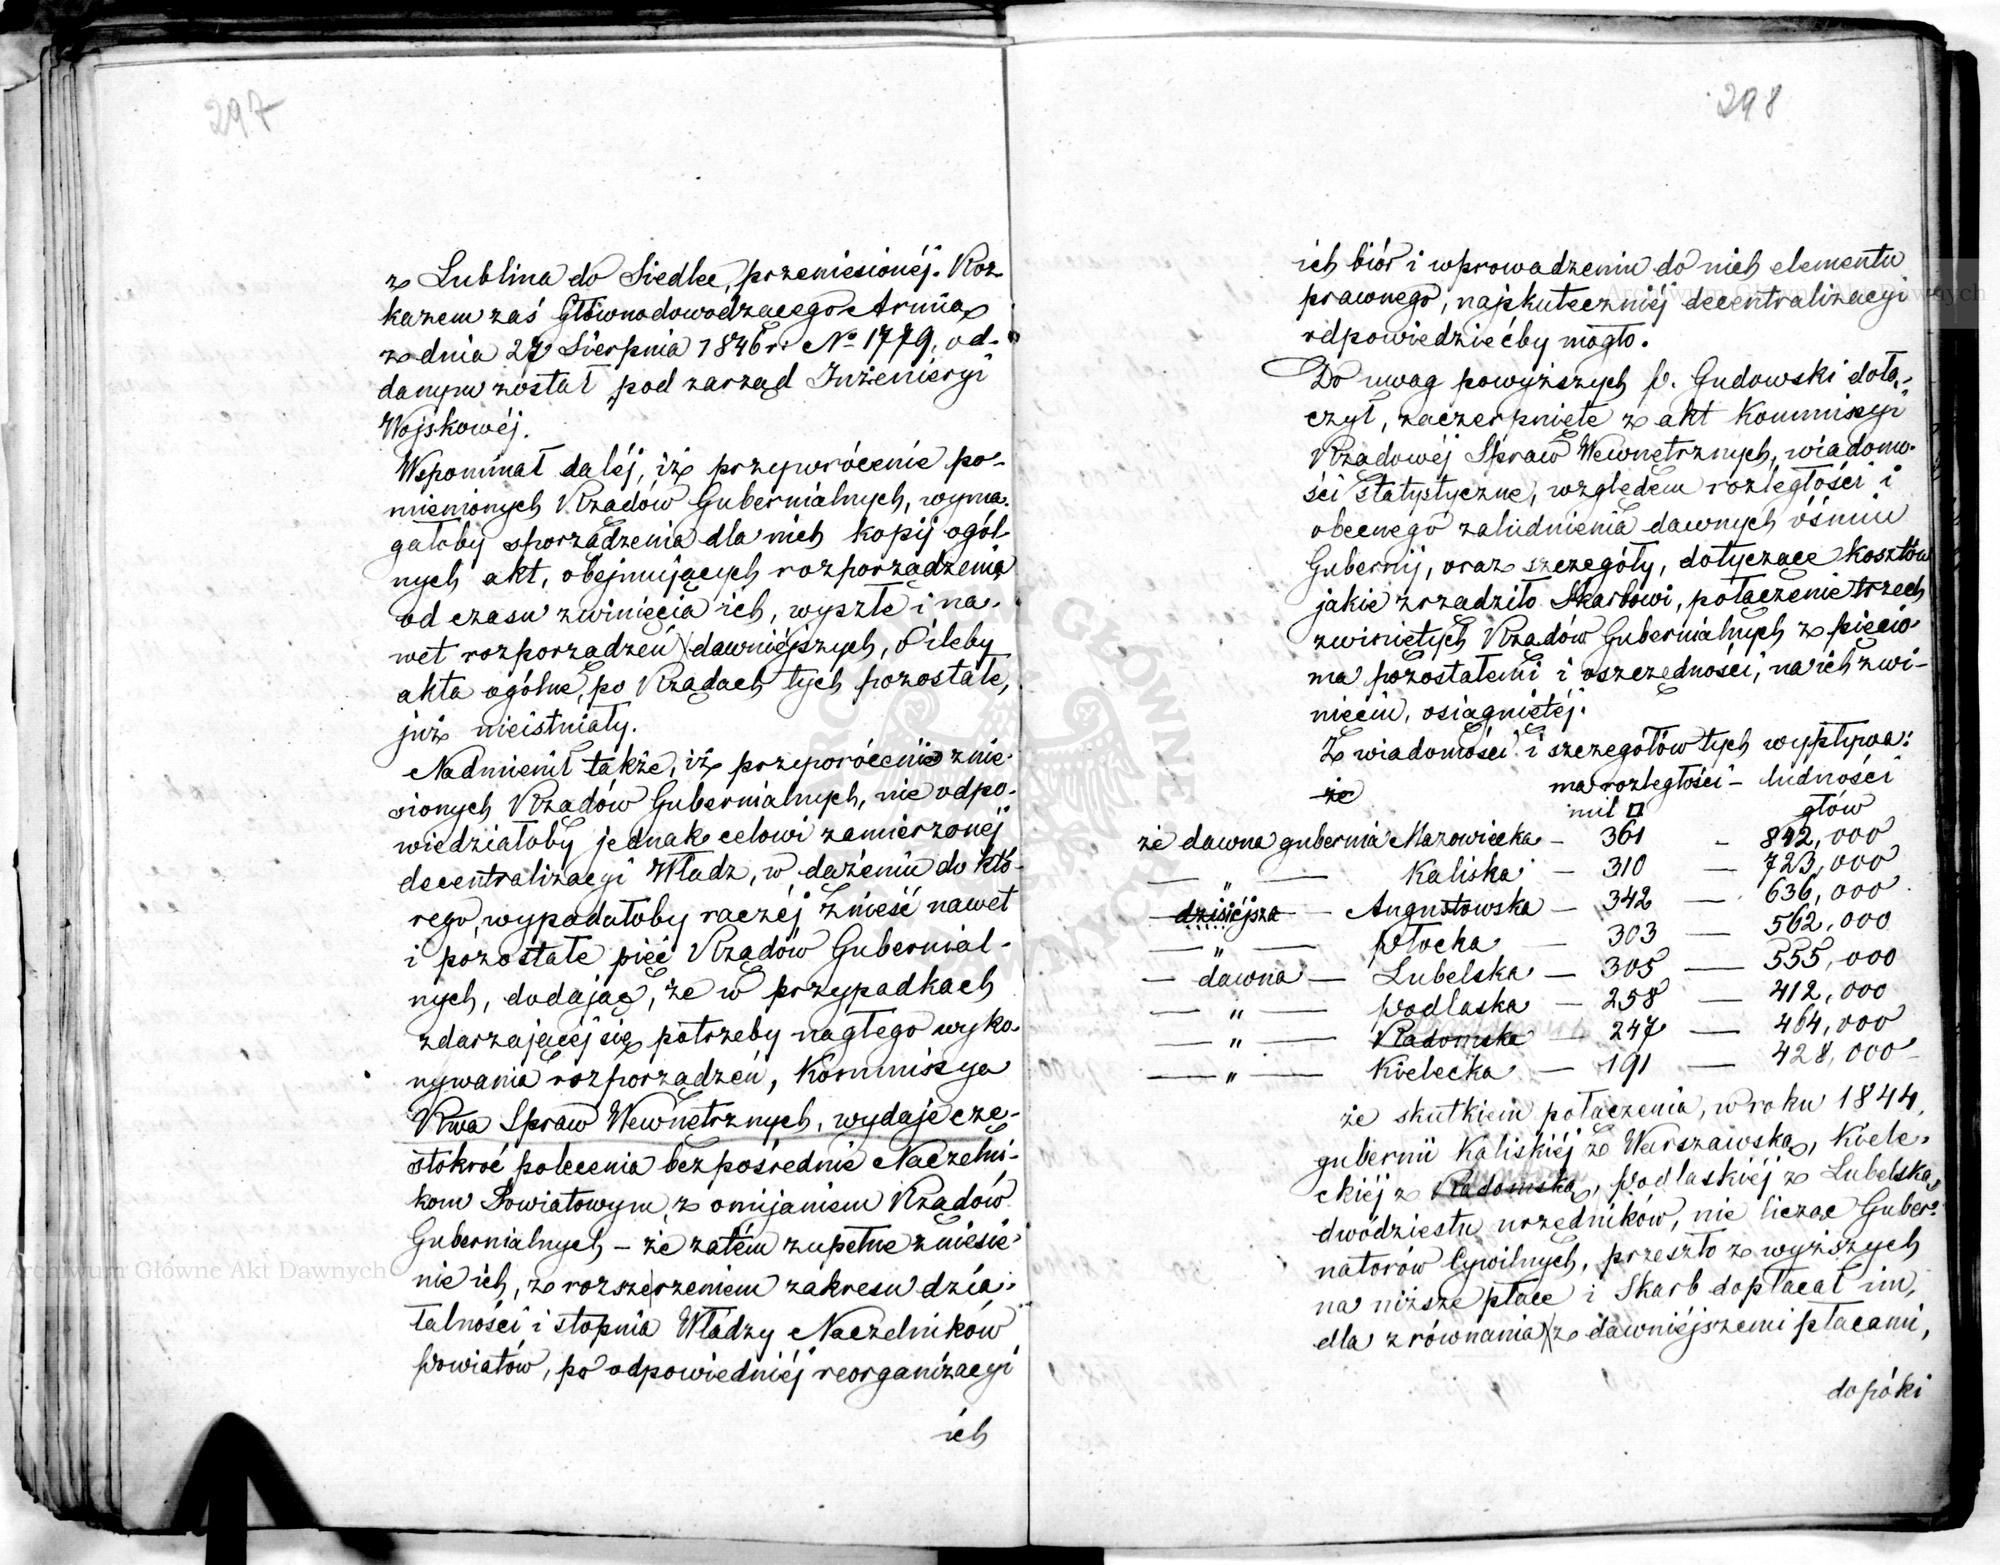 297
z Lublina do Siedlec, przeniesionéj. Roz-
kazem zaś Głównodowodzącego Armią
z dnia 27 Sierpnia 1846 r. No 1779, od-
danym został pod zarząd Inżenieryi
Wojskowéj.
Wspominał daléj, iż przywrócenie po-
mienionych Rządów Gubernialnych, wyma-
gałoby sporządzenia dla nich kopij ogól-
nych akt, obejmujących rozporządzenia
od czasu zwinięcia ich, wyszłe i na-
wet rozporządzeń dawniéjszych, o ileby
akta ogólne, po Rządach tych pozostałe,
już nieistniały.
Nadmienił także, iż przywrócenie znie-
sionych Rządów Gubernialnych, nie odpo-
wiedziałoby jednak celowi zamierzonéj
decentralizacyi Władz, w dążeniu do któ-
rego, wypadałoby raczéj znieść nawet
i pozostałe pięć Rządów Gubernial-
nych, dodając, że w przypadkach
zdarzającéj się potrzeby nagłego wyko-
nywania rozporządzeń, Kommissya
Rwa Spraw Wewnętrznych, wydaje czę-
stokroć polecenia bezpośrednie Naczelni-
kom Powiatowym, z omijaniem Rządów
Gubernialnych – że zatém zupełne zniesie-
nie ich, z rozszerzeniem zakresu dzia-
łalności i stopnia Władzy Naczelników
Powiatów, po odpowiedniéj reorganizacyi
ich
298
ich biór i wprowadzeniu do nich elementu
prawnego, najskuteczniéj decentralizacyi
odpowiedziećby mogło.
Do uwag powyższych p. Gudowski dołą-
czył, zaczerpnięte z akt Kommissyi
Rządowéj Spraw Wewnętrznych, wiadomo-
ści statystyczne, względem rozległości i
obecnego zaludnienia dawnych óśmiu
Gubernij, oraz szczegóły, dotyczące kosztów
jakie zrządziło Skarbowi, połączenie trzech
zwiniętych Rządów Gubernialnych z pięcio-
ma pozostałemi i oszczędności, na ich zwi-
nięciu, osiągniętéj.
Z wiadomości i szczegółów tych wypływa:
że ma rozległości – ludności
mil □ głów
że dawna gubernia Mazowiecka – 361 – 842,000
— „ — Kaliska – 310 — 723,000
— dzisiéjsza — Augustowska – 342 — 636,000
— „ — Płocka — 303 — 562,000
— dawna — Lubelska — 305 — 555,000
— „ — Podlaska — 258 — 412,000
— „ — Radomska — 247 — 464,000
— „ — Kielecka — 191 — 428,000
że skutkiem połączenia, w roku 1844,
gubernii Kaliskiéj z Warszawską, Kiele-
ckiéj z Radomską, Podlaskiéj z Lubelską
dwódziestu urzędników, nie licząc Guber-
natorów Cywilnych, przeszło z wyższych
na niższe płace i Skarb dopłacał im,
dla zrównania z dawniéjszemi płacami,
dopóki
Archiwum Główne Akt Dawnych
Archiwum Główne Akt Dawnych